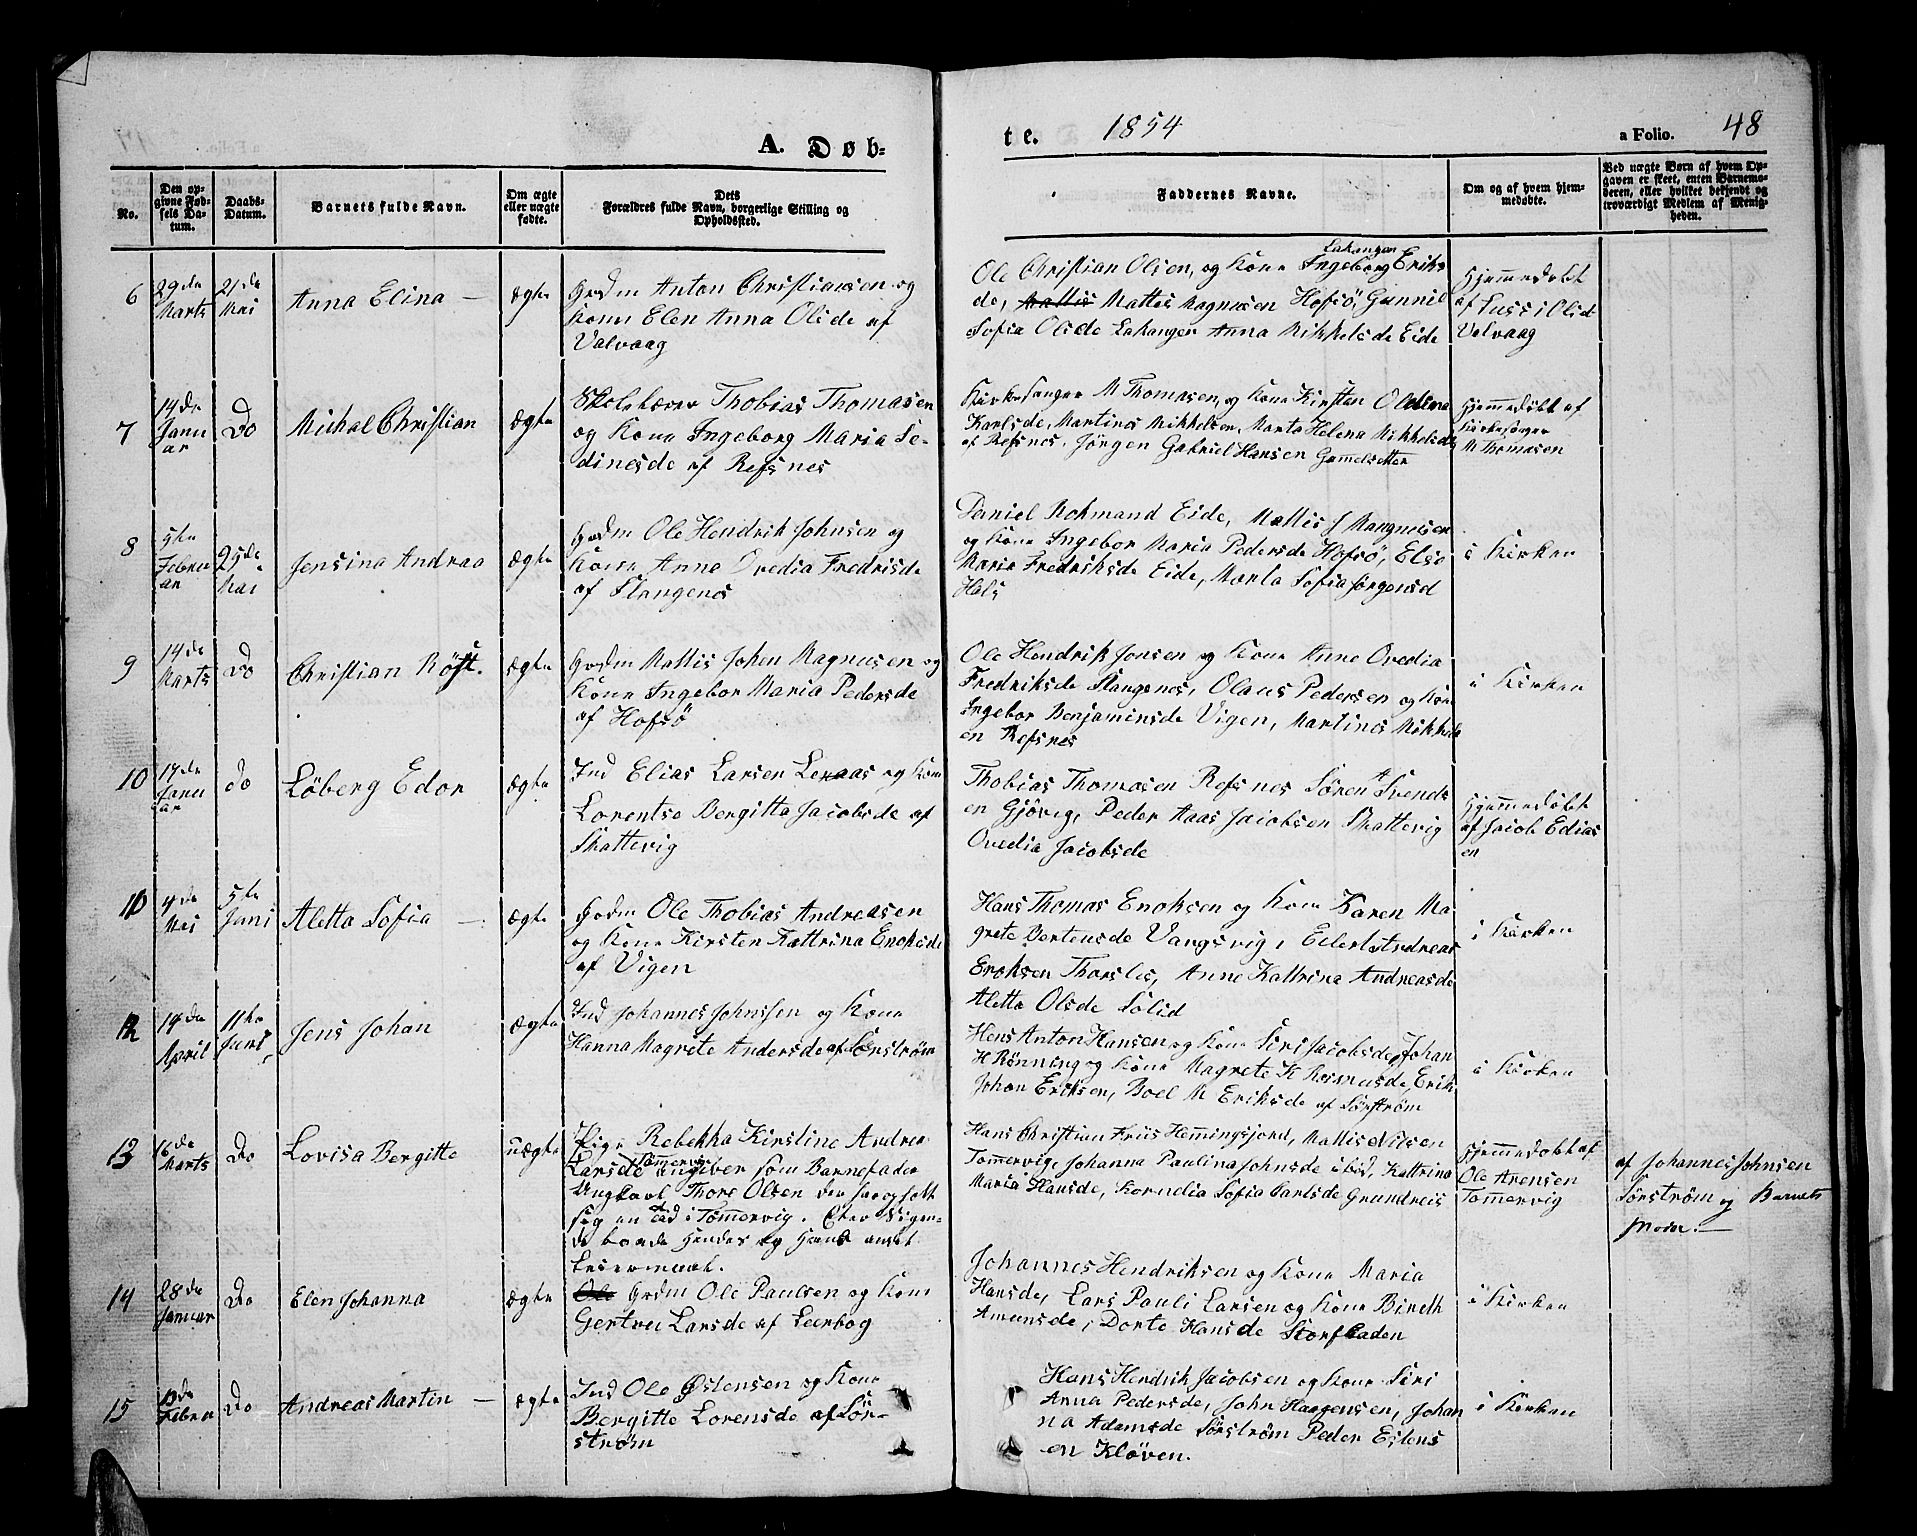 A. Døb-
te. 1854
a Folio. 48
No.
Den opgivne Fødsels Datum.
Daabs-Datum.
Barnets fulde Navn.
Om ægte eller uægte fødte.
Dets Forældres fulde Navn, borgerlige Stilling og Opholdssted.
Faddernes Navne.
Om og af hvem hjemmedøbte.
Ved uægte Børn af hvem Opgaven er skeet, enten Barnemoderen, eller hvilket bekjendt og troværdigt Medlem af Menigheden.
6
29de Marts
21de Mai
Anna Elina —
ægte
Grdm Anton Christiansen og
Kone Elen Anna Olsde af
Valvaag
Lakangen
Ole Christian Olsen, og Kone Ingeborg Eriks
de, Mattis Mattis Magnusen Hofsö, Gunnil
Sofia Olsde Lakangen Anna Mikkelsde Eide
Hjemmedøbt
af Lussi Olsd
Valvaag
7
14de Januar
Do
Michal Christian
ægte
Skolelærer Thobias Thomasen
og Kone Ingeborg Maria Se-
dinesde af Refsnes
Kirkesanger M Thomasen, og Kone Kirsten Oldina
Karlsde, Martines Mikkelsen, Marta Helena Mikkelsde
af Refsnes, Jörgen Gabriel Hansen Gammelsetter
Hjemmedöbt af
Kirkesanger
M Thomasen
8
5te Februar
25de Mai
Jensina Andrea
ægte
Grdm Ole Hendrik Johnsen og
Kone Anne Ovedia Fredrisde
af Slangenes
Daniel Rokmand Eide, Mattis J Mangnusen
og Kone Ingebor Maria Pedersde Hofsö, Elso
Maria Fredriksde Eide, Marta Sofia Jörgensd
Hals
i Kirken
9
14de Marts
Do
Christian Röst.
ægte
Grdm Mattis Johan Magnusen og
Kone Ingebor Maria Pedersde
af Hofsö
Ole Hendrik Jonsen og Kone Anne Ovedia
Fredriksde Slangenes, Olaus Pedersen og Kone
Ingebor Benjaminsde Vigen, Martines Mikkels
en Refsnes
i Kirken
10
14de Januar
do
Löberg Edor
ægte
Ind Elias Larsen Leraas og Kone
Lorentse Bergitta Jacobsde af
Skattevig
Thobias Thomasen Refsnes Sören A Svends
en Gjövig, Peder Aaas Jacobsen Skattevig
Ovedia Jacobsde
Hjemmedöbt
af Jacob Edias
en
11
4de Mai
5te Juni
Aletta Sofia —
ægte
Grdm Ole Thobias Andreasen
og Kone Kirsten Kattrina Enoksde
af Vigen
Hans Thomas Enoksen og Kone Karen Ma
grete Bertensde Vangsvig, Eilert Andreas
Enoksen Thorslis, Anne Kattrina Andreasde
Aletta Olsde Solid
i Kirken
12
14de April
11te Juni
Jens Johan
ægte
Ind Johannes Johnssen og Kone
Hanna Magrete Andersde af Sörström
Hans Anton Hansen og Kone Siri Jacobsde, Johan
H Rönning og Kone Magrete K Rasmusde, Erik
Johan Eriksen, Boel M Eriksde af Sörström
i Kirken
13
16de Marts
Do
Lovisa Bergitte
uægte
Pige Rebekka Kirstine Andrea
Tömmervig
Larsde angiber som Barnefader
Ungkarl Thore Olsen der har opholdt
sig en Tid i Tömmervig. Efter Sigen-
de baade Hendes og Hans andet
Leiermaal.
Hans Christian Friis Hemmingsjord, Mattis Nilsen
Tommervig, Johanna Paulina Johnsde ibid, Kattrina
Maria Hansde, Kornelia Sofia Carlsde Grundreis
Hjemmedøbt af
Ole Arensen
Tommervig
af Johannes Johnsen
Sörström og Barnets
Moder.—
14
28de Januar
Do
Elen Johanna
ægte
Ole Grdm Ole Paulsen og Kone
Gertru Larsde af Leerbog
Johannes Hendriksen og Kone Maria
Hansde, Lars Pauli Larsen og Kone Bireth
Amunsde, Dorte Hansde Storfladen
i Kirken
15
13de Febru
Do
Andreas Martin —
ægte
Ind Ole Østensen og Kone
Bergitte Lorensde af Sör-
ström
Hans Hendrik Jacobsen og Kone Siri
Anna Pedersde, John Haagensen, Johan
na Adamsde Sörström Peder Eslens
en Klöven.
i Kirken